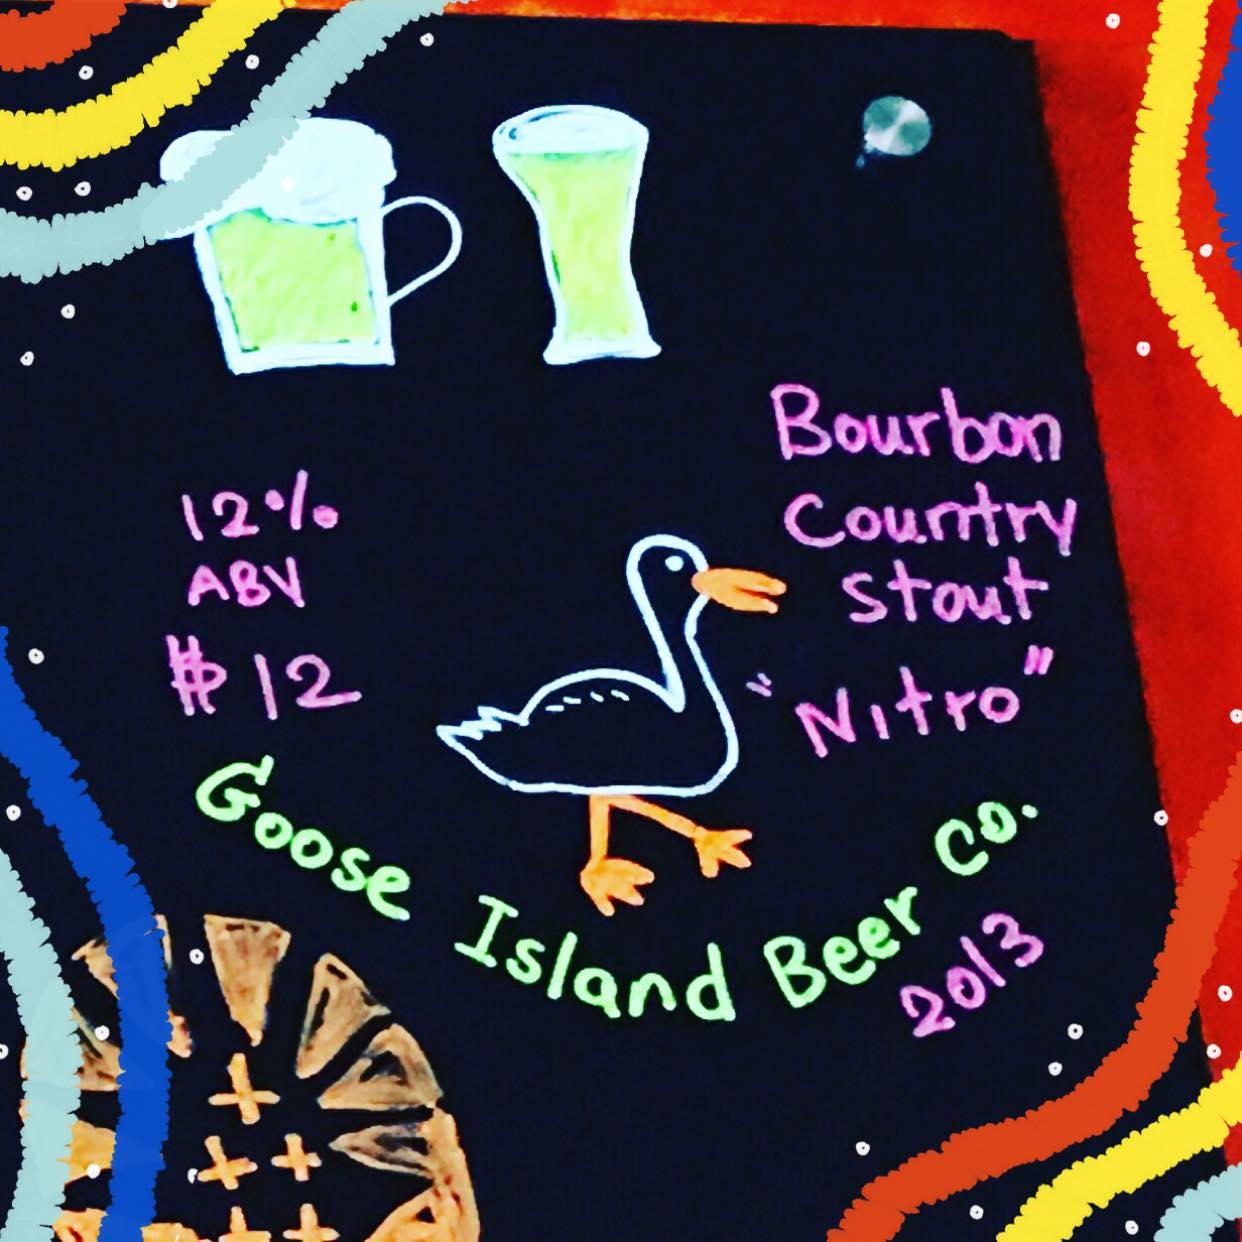 Bourbon
Country
Stout
"Nitro"
12%
ABV
$12
Goose Island Beer Co.
2013